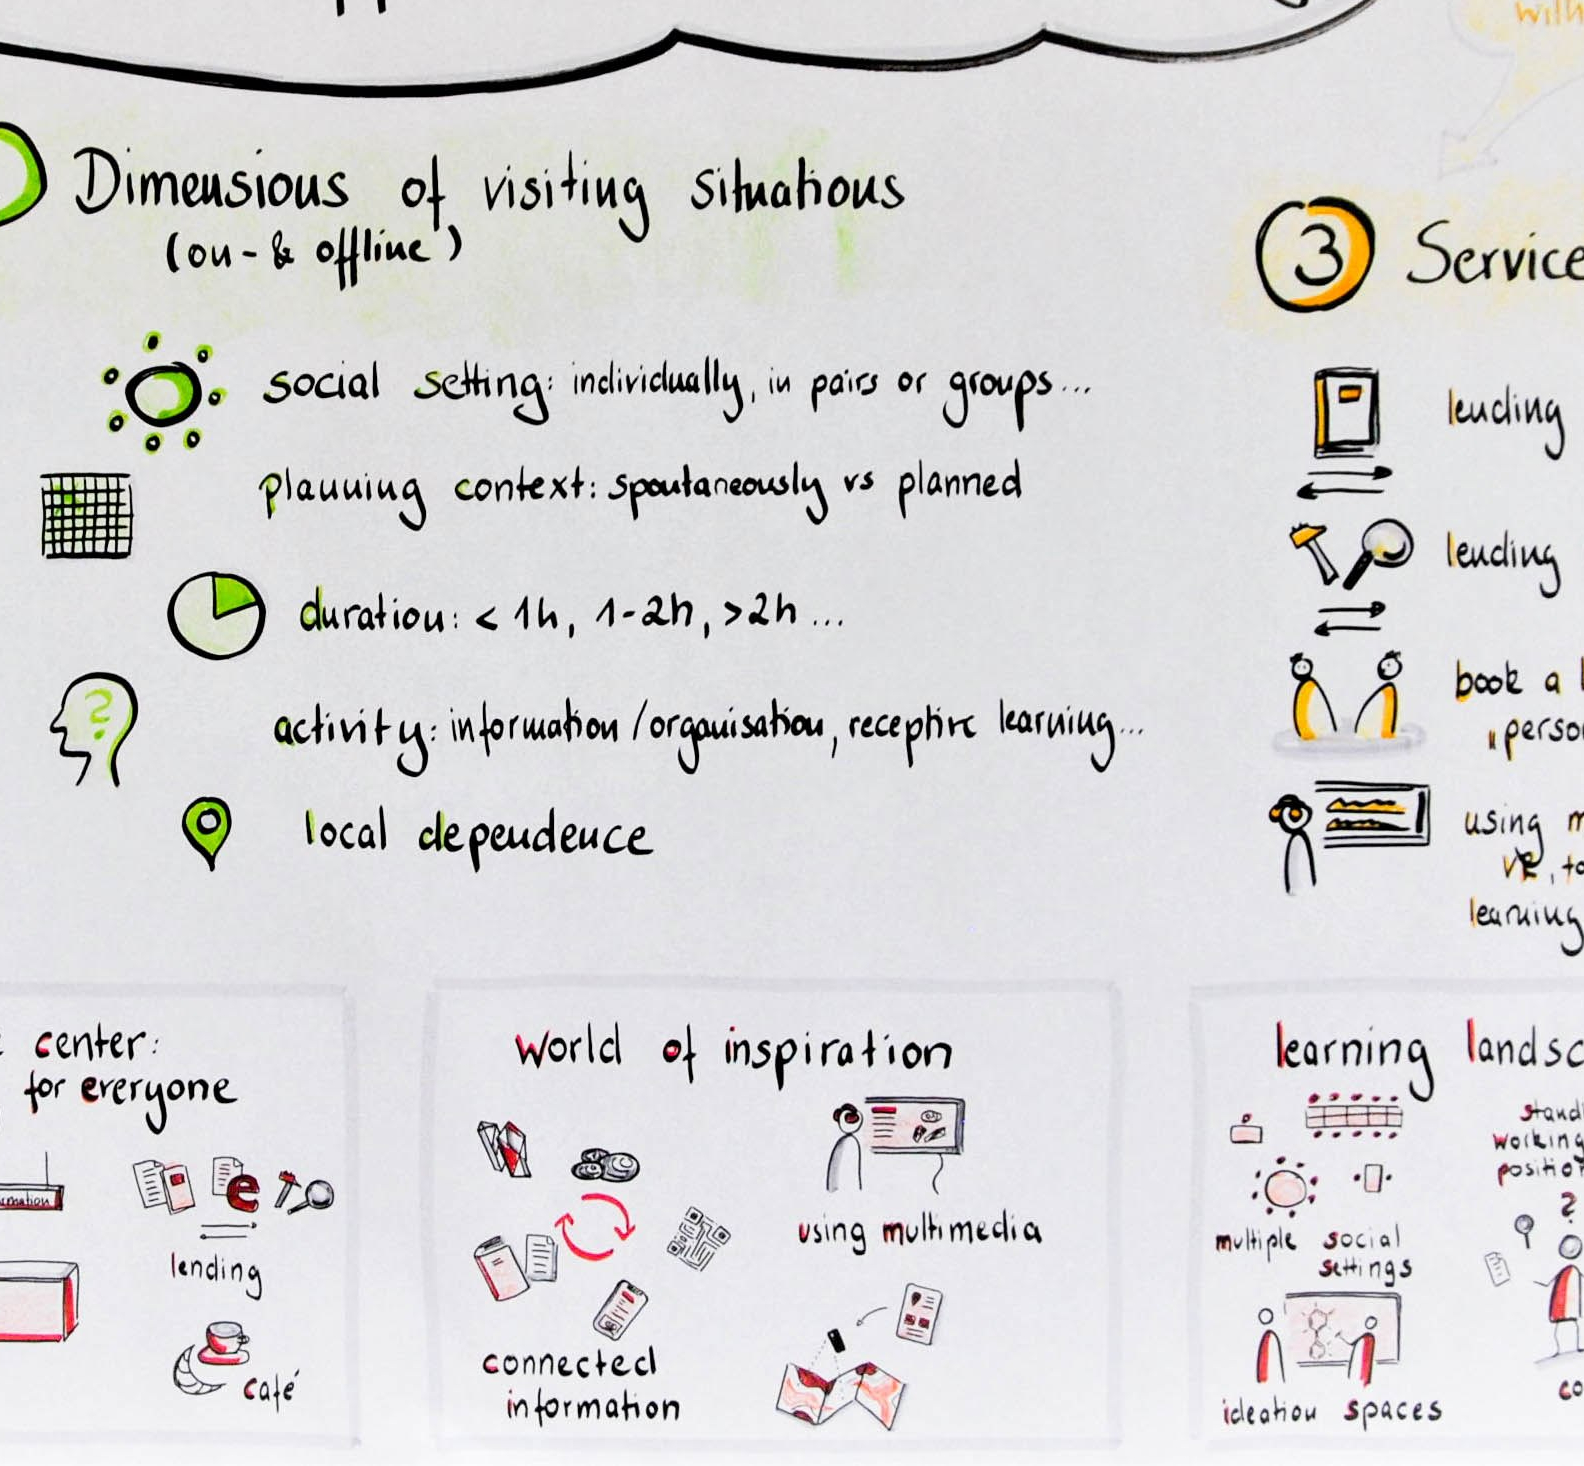 with
Dimensions of visiting situations
(on- & offline)
social setting: individually, in pairs or groups...
planning context: spontaneously vs planned
duration: < 1h, 1-2h, >2h ...
activity: information/organisation, receptive learning...
local dependence
3 Service
lending
lending
book a
"perso
using m
VR, to
learning
center:
for everyone
rmation
lending
café
world of inspiration
using multimedia
connected
information
learning landsc
standi
working
position
multiple social
settings
ideation spaces
co